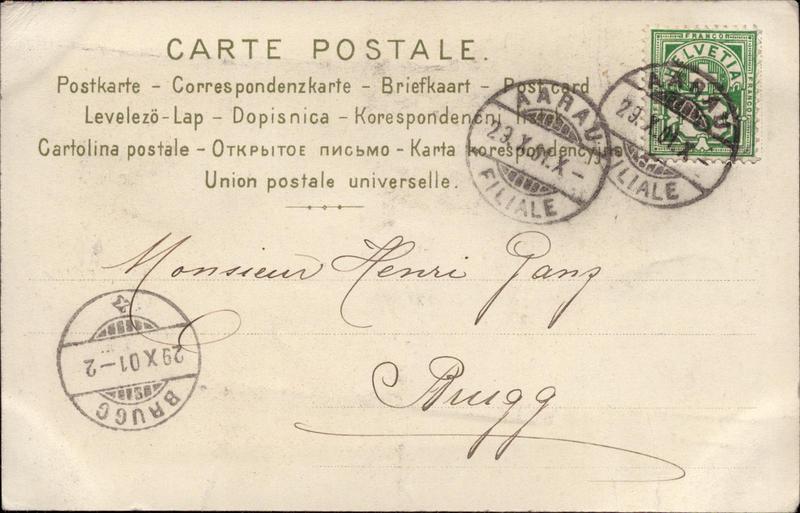 CARTE POSTALE.
Postkarte – Correspondenzkarte – Briefkaart – Post card
Levelezö-Lap – Dopisnica – Korespondencni
Cartolina postale – Открытое письмо – Karta korespondencyjna
Union postale universelle.
FRANCO
HELVETIA
AARAU
29.X.01.X–
FILIALE
AARAU
29.X.01.X–
FILIALE
Monsieur Henri Ganz
Brugg
BRUGG
29 X 01–2